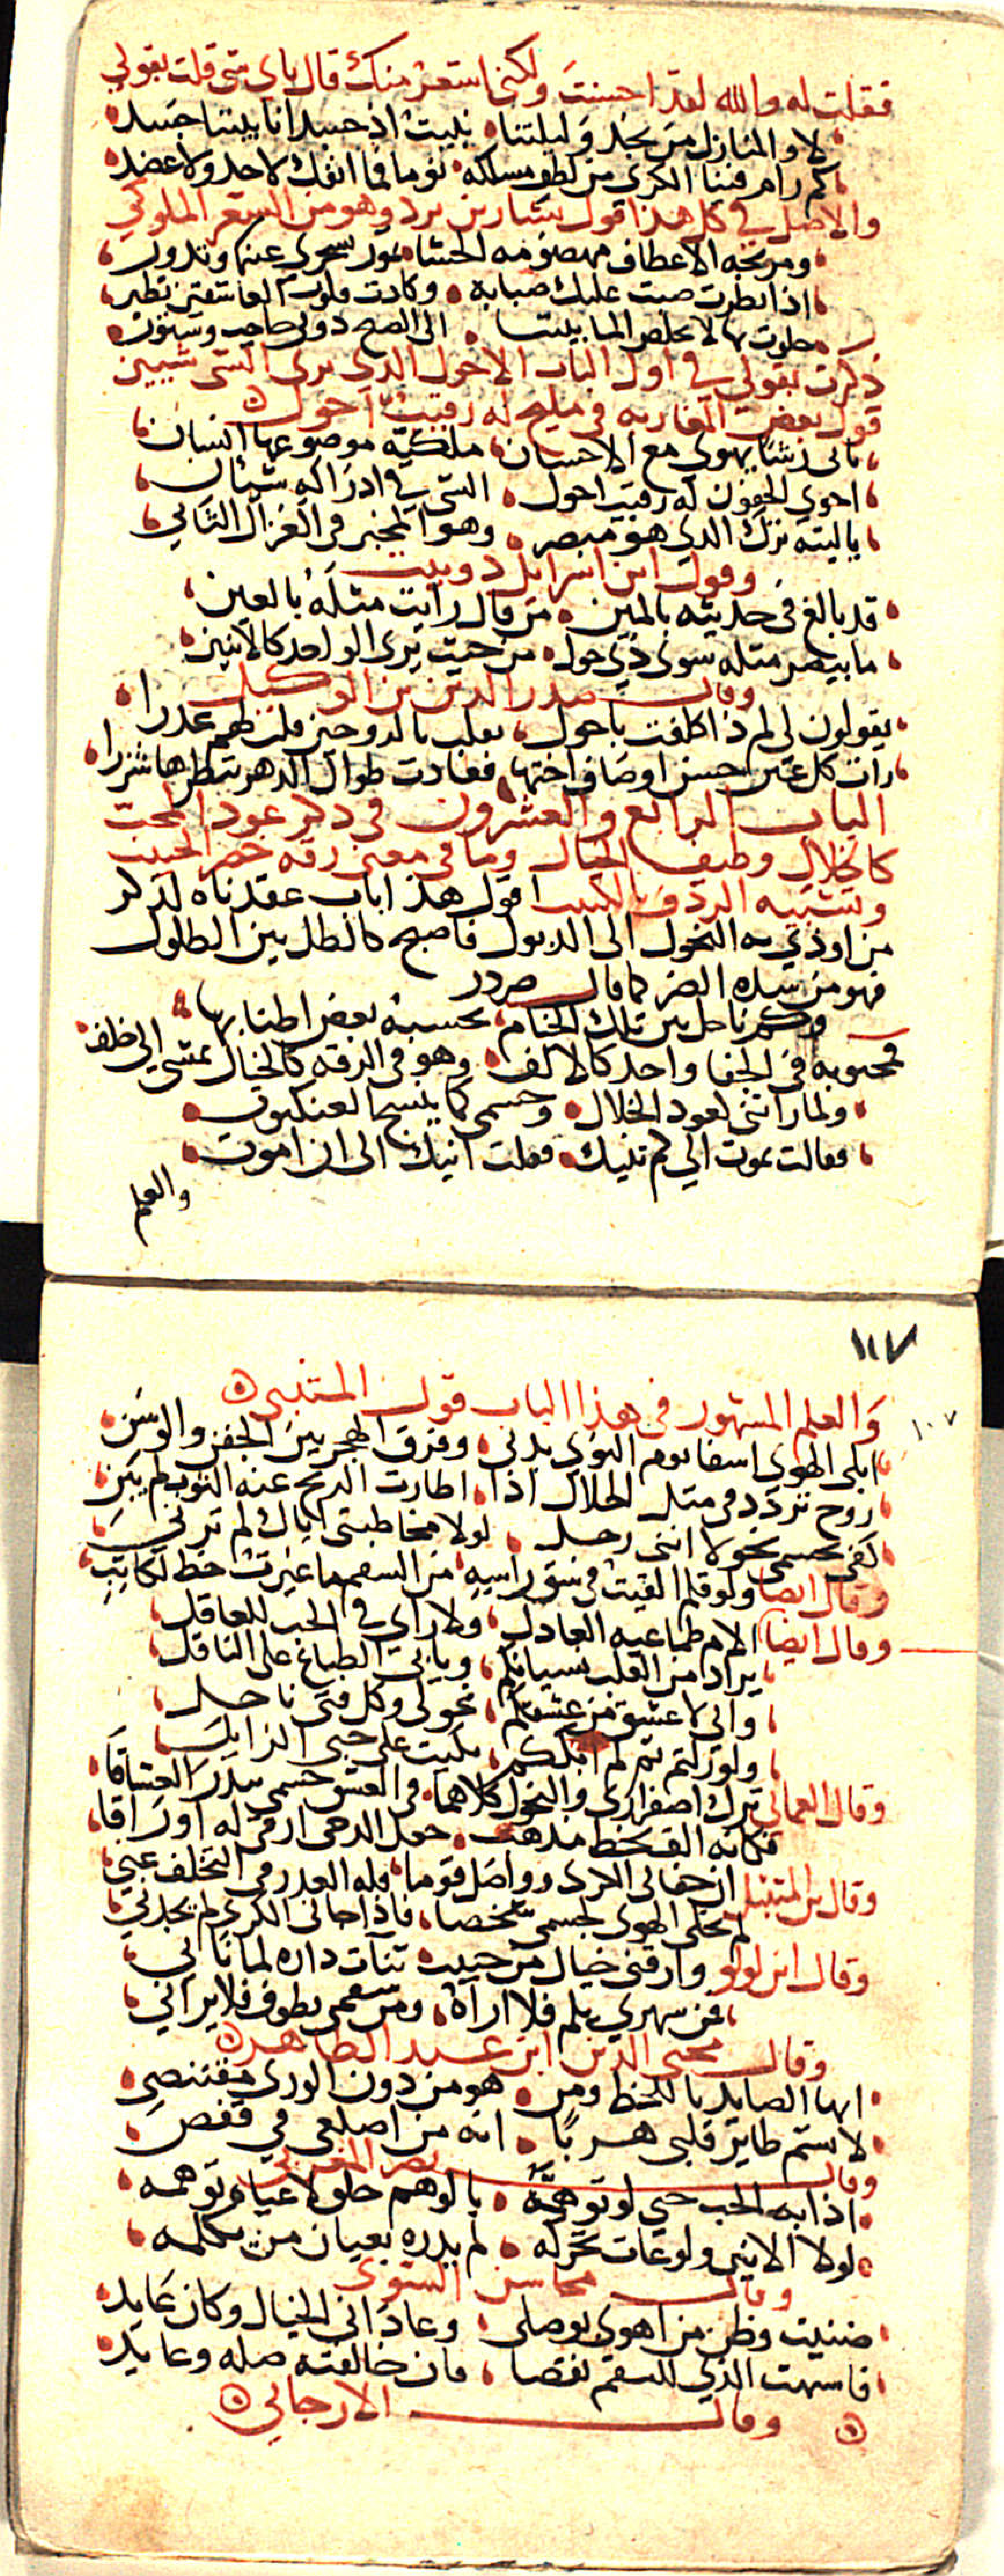 فقلت له والله لقد احسنت ولكني استعرت منك قال باي شي قلت بقولي
لا والمنازل من نجد وليلتنا بليت اذ جسدانا بيننا جسد
كم رام فينا الكرى من لطف مسلكه نوما فما انفك لا خد ولا عضد
والاصل في كل هذا قول بشار بن برد وهو من الشعر الملوكي
ومرتجة الاعطاف مهضومة الحشا تمور بسحر عينها وتدور
اذا نظرت صبت عليك صبابة وكادت قلوب العاشقين تطير
خلوت بها لا يخلص الما بيننا الى الصبح دوني حاجب وستور
ذكرت بقولي في اول الباب الاحول الذي يرى الشي شيين
قول بعض المغاربه في مليح له رقيب احول
بابي رشا يهوى مع الاحسان ملكيه موضوعها انسان
احوى الجفون له رقيب احول الشي في ادراكه شيئان
يا ليته ترك الذي هو مبصر وهو المخبر في الغزال الثاني
وقول ابن اسرائيل دوبيت
قد بالغ في حديثه بالمين من قال رايت مثله بالعين
ما يبصر مثله سوى ذي حول من حيث يرى الواحد كالاثنين
وقال صدر الدين بن الوكيل
يقولون لي لم ذا كلفت باحول يقلب بالدوحين قلت لهم عذرا
رات كل عين حسن اوصاف اختها فغادت طوال الدهر تنظرها شزرا
الباب الرابع والعشرون في ذكر عود المحب
كالخلال وطيف الخيال وما في معنى رقة خصر الحبيب
وتشبيه الردف بالكثيب اقول هذا باب عقدناه لذكر
من اوذي به النحول الى الذبول فاصبح كالطل بين الطلول
فهو من شدة الضر كما قال صردر
وكم ناحل بين تلك الخيام تحسبه بعض اطنابها
فمحبوبه في الجفا واحد كالالف وهو في الرقه كالخيال يمشي الى خلف
ولما راتني كعود الخلال وجسمي كما ينسج العنكبوت
فقالت تموت الى كم تنيك فقلت انيك الى ان اموت
والعلم
١١٧
١٠٧
والعلم المشهور في هذا الباب قول المتنبي
ابلى الهوى اسفا يوم النوى بدني وفرق الهجر بين الجفن والوسن
روح تردد في مثل الخلال اذا اطارت الريح عنه الثوب لم يبن
كفى بجسمي نحولا انني رجل لولا مخاطبتي اياك لم ترني
وقال ايضا ولو قلم القيت في شق راسه من السقم ما غيرت خط لكاتب
وقال ايضا الام طماعيه العاذل ولا راي في الحب للعاقل
يراد من القلب نسيانكم ويابى الطباع على الناقل
واني لاعشق من عشقكم نحولي وكل فتى ناحل
ولو زلتم ثم لم ابككم بكيت على حبي الزايل
وقال العماني ترك اصفراري والنحول كلاهما في العشق جسمي سدر العشاقا
فكانه الف بخط مذهب جعل الدجى ارقي له اوراقا
وقال بن المتنبل ان جفاني الكرى وواصل قوما فله العذر في التخلف عني
لم يخلي الهوى لجسمي شخصا فاذا جاني الكرى لم يجدني
وقال ابن لولو وارقني خيال من حبيب تنآت داره لما نآني
فمن سهري يلم فلا اراه ومن سقمي يطوف فلا يراني
وقال محيي الدين ابن عبد الظاهر
ايها الصايد باللحظ ومن هو من دون الورى مقتنصي
لا تسم طاير قلبي هربا انه من اضلعي في قفص
وقال نصر
اذابه الحب حتى لو توهمه بالوهم خلق لاعياه توهمه
لولا الانين ولوعات تحركه لم يدره بعيان من يكلمه
وقال محاسن الشوى
ضنيت وظن من اهوى بوصلي وعاداني الخيال وكان عايد
فاشبهت الذي للسقم نقصا فان خالفته صله وعايد
وقال الارجاني